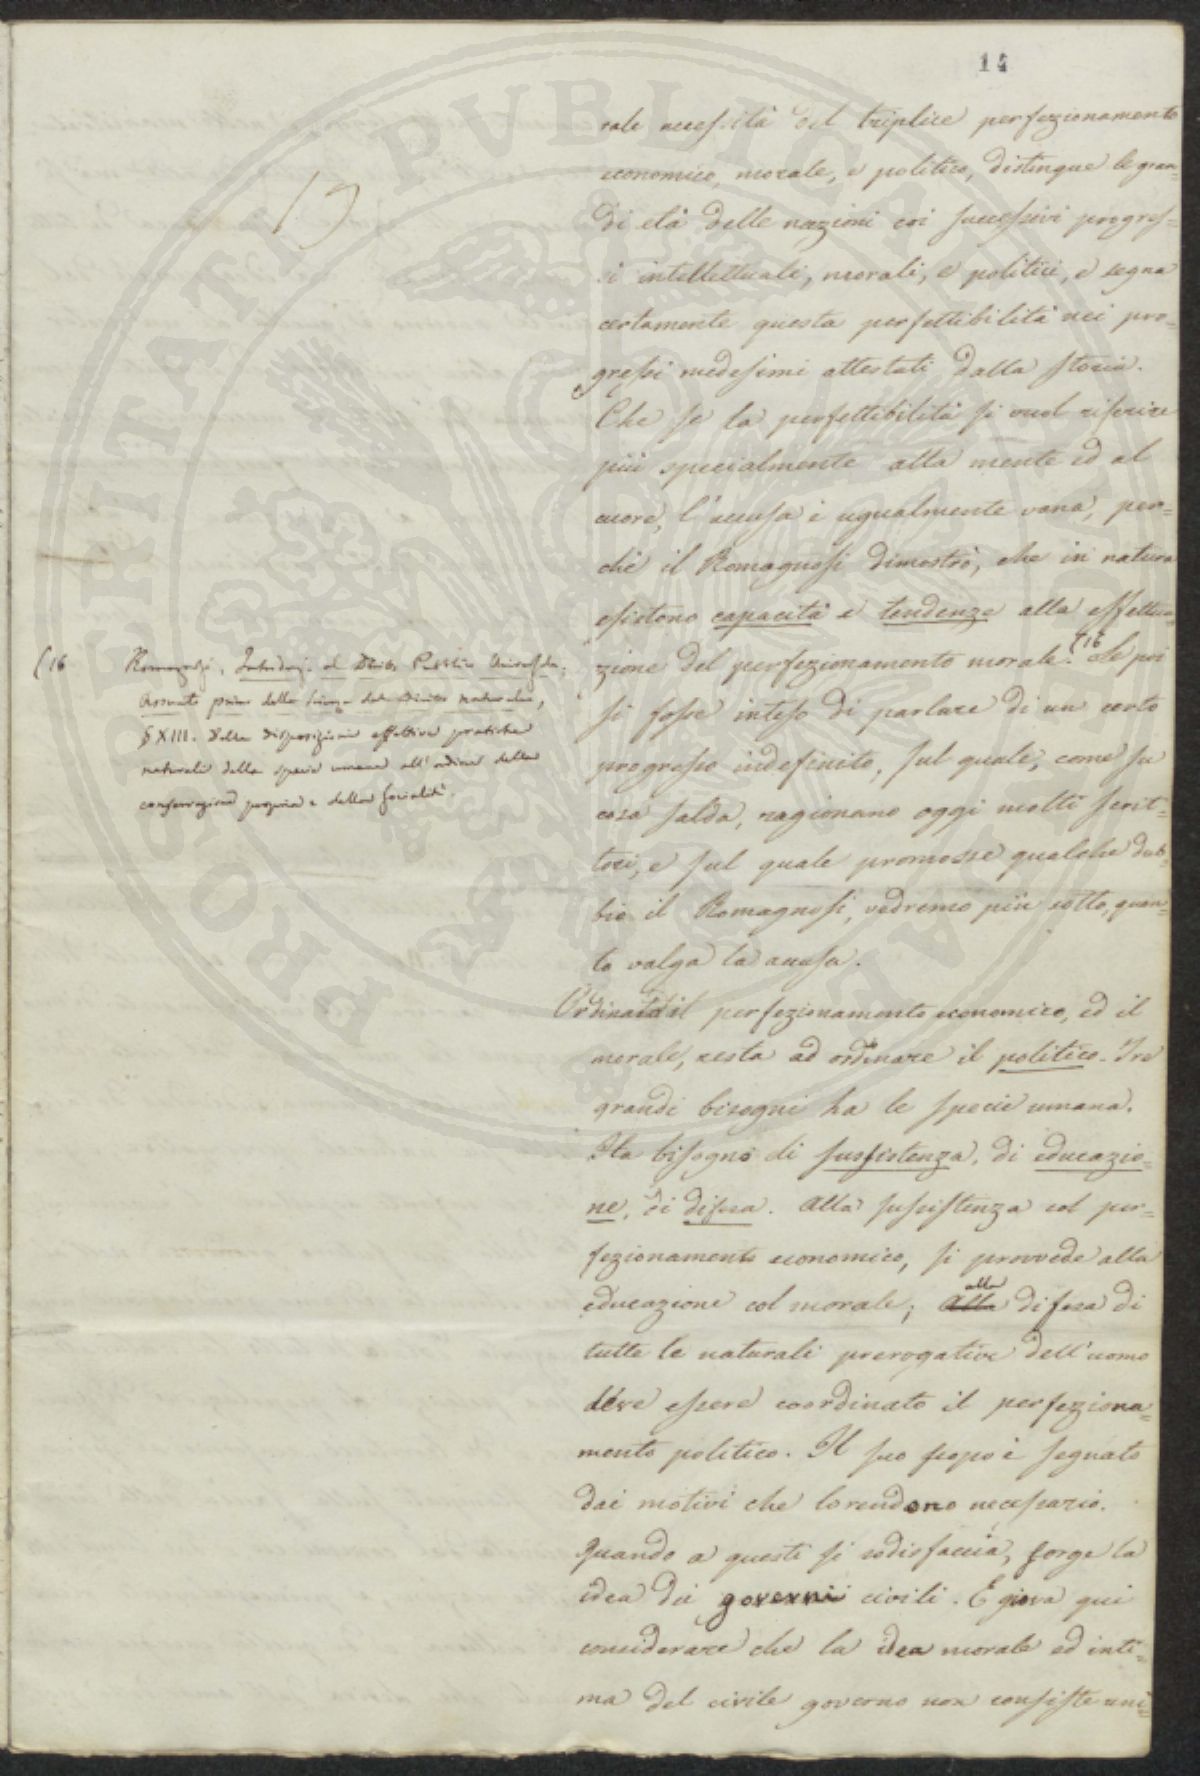 14
13
rale necessità del triplice perfezionamento
economico, morale, e politico, distingue le gran=
di età delle nazioni coi successivi progres=
si intellettuali, morali, e politici, e segna
certamente questa perfettibilità nei pro=
gressi medesimi attestati dalla storia.
Che se la perfettibilità si vuol riferire
più specialmente alla mente ed al
cuore, l'accusa è ugualmente vana, per=
chè il Romagnosi dimostrò, che in natura
esistono capacità e tendenze alla effettua=
zione del perfezionamento morale. (16 Se poi
si fosse inteso di parlare di un certo
progresso indefinito, sul quale, come su
cosa salda, ragionano oggi molti scrit=
tori, e sul quale promosse qualche dub=
bio il Romagnosi, vedremo più sotto, quan=
to valga la accusa.
Ordinato il perfezionamento economico, ed il
morale, resta ad ordinare il politico. Tre
grandi bisogni ha la specie umana.
Ha bisogno di sussistenza, di educazio=
ne, di difesa. Alla sussistenza col per=
fezionamento economico, si provvede alla
educazione col morale; Alla alla difesa di
tutte le naturali prerogative dell'uomo
deve essere coordinato il perfeziona=
mento politico. Il suo scopo è segnato
dai motivi che lo rendono necessario.
Quando a questi si sodisfaccia, sorge la
idea dei governi civili. E giova qui
considerare che la idea morale ed inti=
ma del civile governo non consiste uni=
(16 Romagnosi, Introduz. al Diritto Pubblico Univers.le.
Assunto primo della scienza del Diritto naturale,
§ XIII. Delle disposizioni effettive pratiche
naturali della specie umana all'ordine della
conservazione propria e della socialità.
PROSPERITATI PVBLICAE